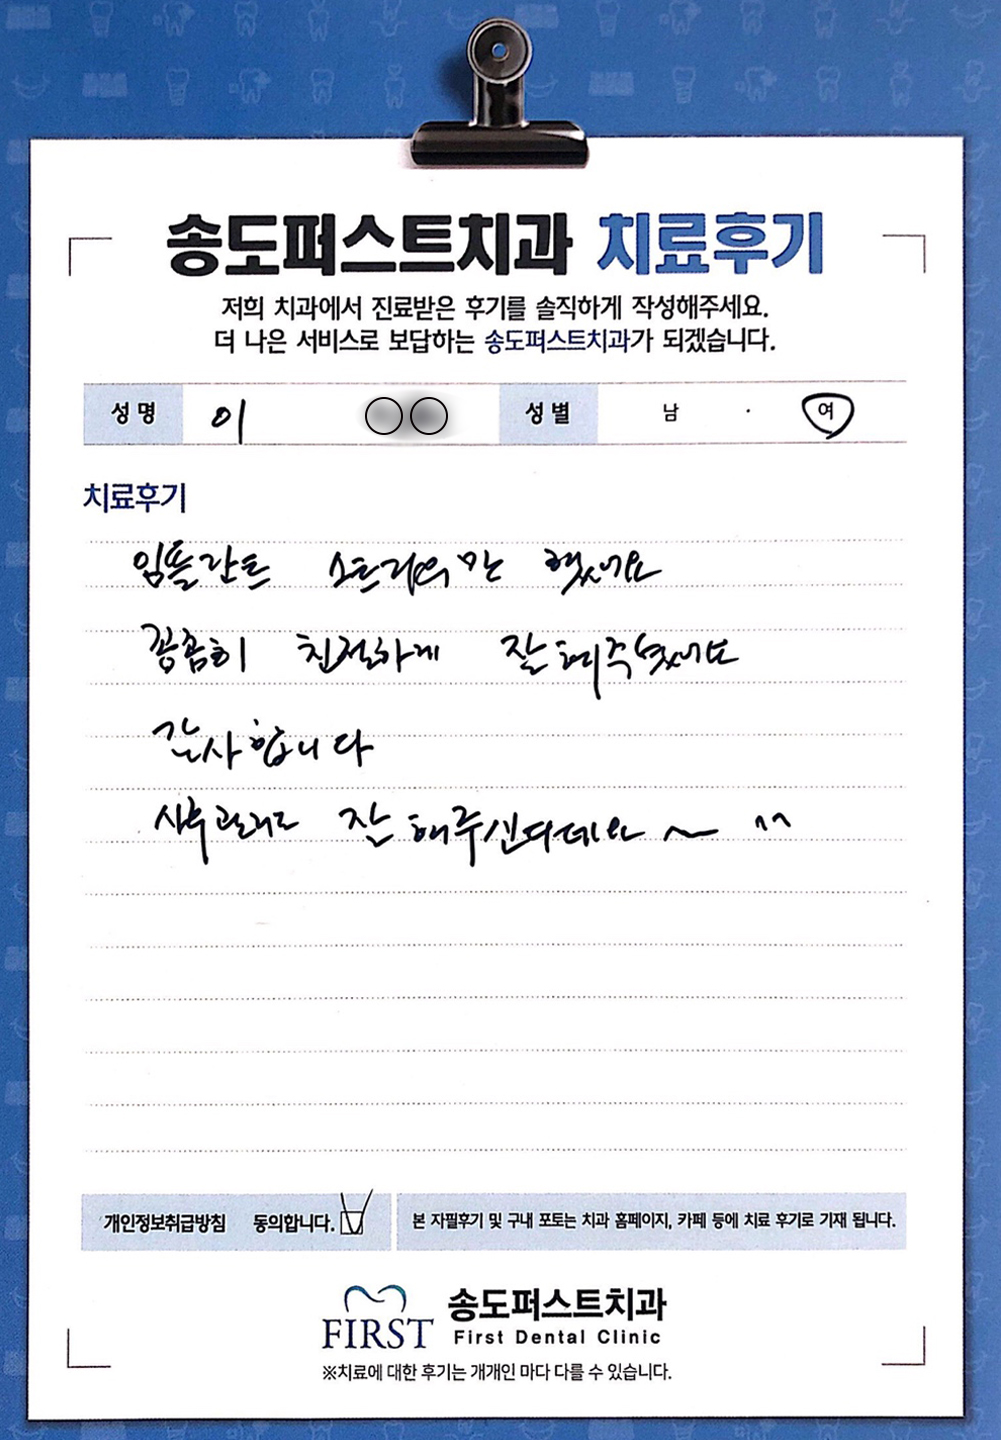 송도퍼스트치과 치료후기
저희 치과에서 진료받은 후기를 솔직하게 작성해주세요.
더 나은 서비스로 보답하는 송도퍼스트치과가 되겠습니다.
성명 이 ○○ 성별 남 · 여
치료후기
임플란트 스트라우만 했어요
꼼꼼히 친절하게 잘 해주셨어요
감사합니다
사후관리도 잘 해주신다데요~ ^^
개인정보취급방침 동의합니다.
본 자필후기 및 구내 포토는 치과 홈페이지, 카페 등에 치료 후기로 기재 됩니다.
FIRST 송도퍼스트치과
First Dental Clinic
※치료에 대한 후기는 개개인 마다 다를 수 있습니다.